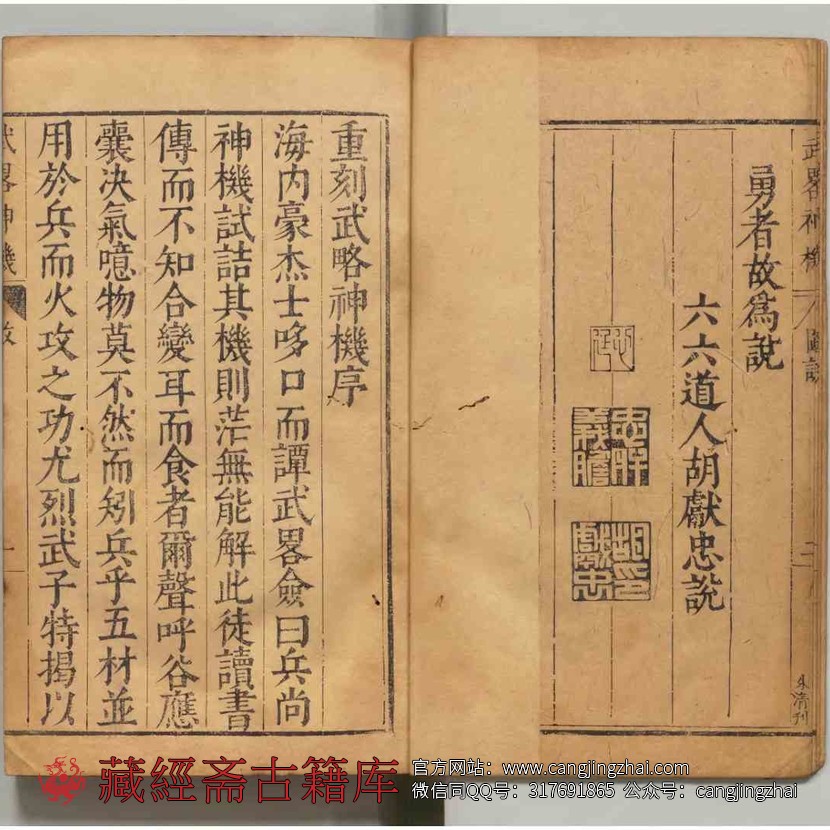 勇者故爲說
六六道人胡獻忠說
忠肝
義膽
胡印
獻忠
朱清刊
重刻武略神機序
海內豪杰士哆口而譚武畧僉曰兵尚
神機試詰其機則茫無能解此徒讀書
傳而不知合變耳而食者爾聲呼谷應
囊决氣噫物莫不然而矧兵乎五材並
用於兵而火攻之功尤烈武子特揭以
武畧神機
藏經斋古籍库
官方网站：www.cangjingzhai.com
微信同QQ号：317691865 公众号：cangjingzhai